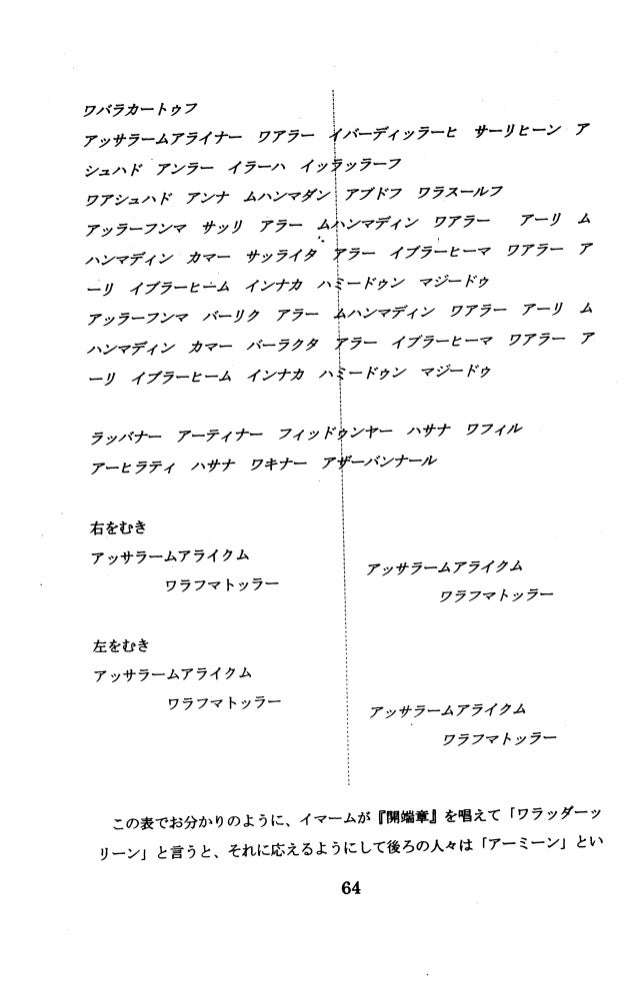 ワバラカートゥフ
アッサラームアライナー　ワアラー　イバーディッラーヒ　サーリヒーン　ア
シュハド　アンラー　イラーハ　イッラッラーフ
ワアシュハド　アンナ　ムハンマダン　アブドフ　ワラスールフ
アッラーフンマ　サッリ　アラー　ムハンマディン　ワアラー　アーリ　ム
ハンマディン　カマー　サッライタ　アラー　イブラーヒーマ　ワアラー　ア
ーリ　イブラーヒーム　インナカ　ハミードゥン　マジードゥ
アッラーフンマ　バーリク　アラー　ムハンマディン　ワアラー　アーリ　ム
ハンマディン　カマー　バーラクタ　アラー　イブラーヒーマ　ワアラー　ア
ーリ　イブラーヒーム　インナカ　ハミードゥン　マジードゥ
ラッバナー　アーティナー　フィッドゥンヤー　ハサナ　ワフィル
アーヒラティ　ハサナ　ワキナー　アザーバンナール
右をむき
アッサラームアライクム
ワラフマトッラー
アッサラームアライクム
ワラフマトッラー
左をむき
アッサラームアライクム
ワラフマトッラー
アッサラームアライクム
ワラフマトッラー
この表でお分かりのように、イマームが『開端章』を唱えて「ワラッダーッ
リーン」と言うと、それに応えるようにして後ろの人々は「アーミーン」とい
64